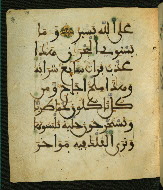 على الله يسير وما
يستوي البحران هذا
عذب فرات سائغ شرابه
وهذا ملح اجاج ومن
كل تاكلون لحما طريا
وتستخرجون حلية تلبسونها
وترى الفلك فيه مواخر